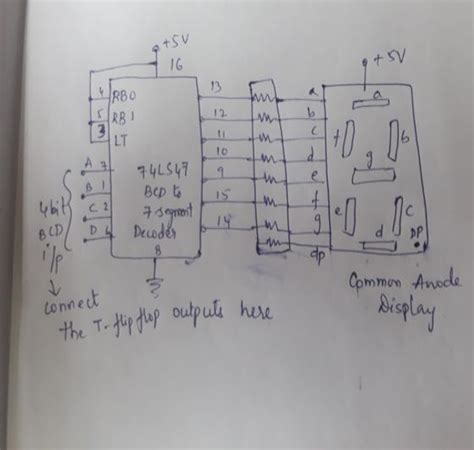 +5V
16
4 RBO
5 RBI
3 LT
A 7
B 1
C 2
D 6
4 bit
BCD
i/p
74LS47
BCD to
7 segment
Decoder
8
13 a
12 b
11 c
10 d
9 e
15 f
14 g
dp
+5V
a
f b
g
e c
d DP
Common Anode
Display
connect
the T-flipflop outputs here